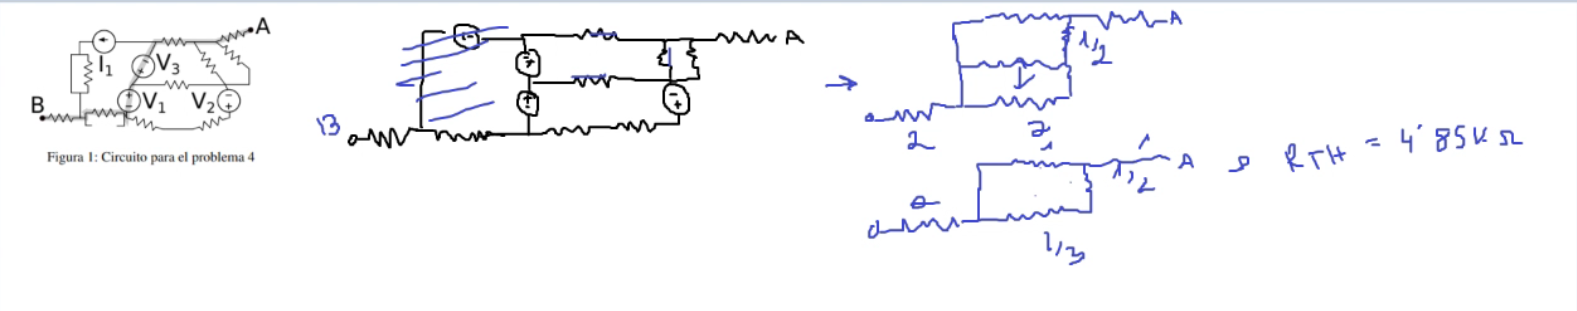 A
I1
V3
B
V1
V2
Figura 1: Circuito para el problema 4
A
B
A
1/2
2
2
1
1
A
1/2
1/3
RTH = 4'85K Ω